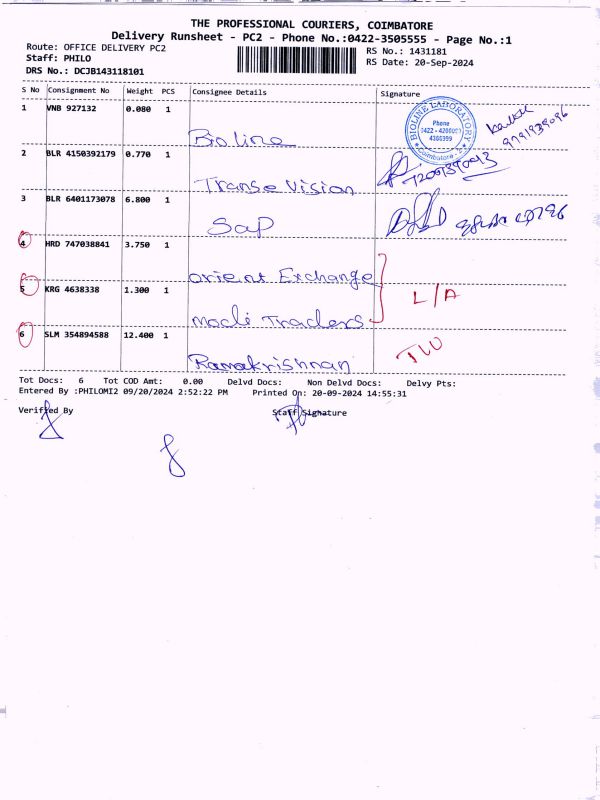 THE PROFESSIONAL COURIERS, COIMBATORE
Delivery Runsheet - PC2 - Phone No.:0422-3505555 - Page No.:1
Route: OFFICE DELIVERY PC2
Staff: PHILO
DRS No.: DCJB143118101
RS No.: 1431181
RS Date: 20-Sep-2024
S No Consignment No Weight PCS Consignee Details Signature
1 VNB 927132 0.080 1
Bioline
BIOLINE LABORATORY
Phone
0422 - 4200
4366399
Coimbatore
9791939096
2 BLR 4150392179 0.770 1
Transe Vision
3 BLR 6401173078 6.800 1
Sap
4 HRD 747038841 3.750 1
orient Exchange
5 KRG 4638338 1.300 1
L/A
modi Traders
6 SLM 354894588 12.400 1
Ramakrishnan
Tot Docs: 6 Tot COD Amt: 0.00 Delvd Docs: Non Delvd Docs: Delvy Pts:
Entered By :PHILOMI2 09/20/2024 2:52:22 PM Printed On: 20-09-2024 14:55:31
Verified By Staff Signature